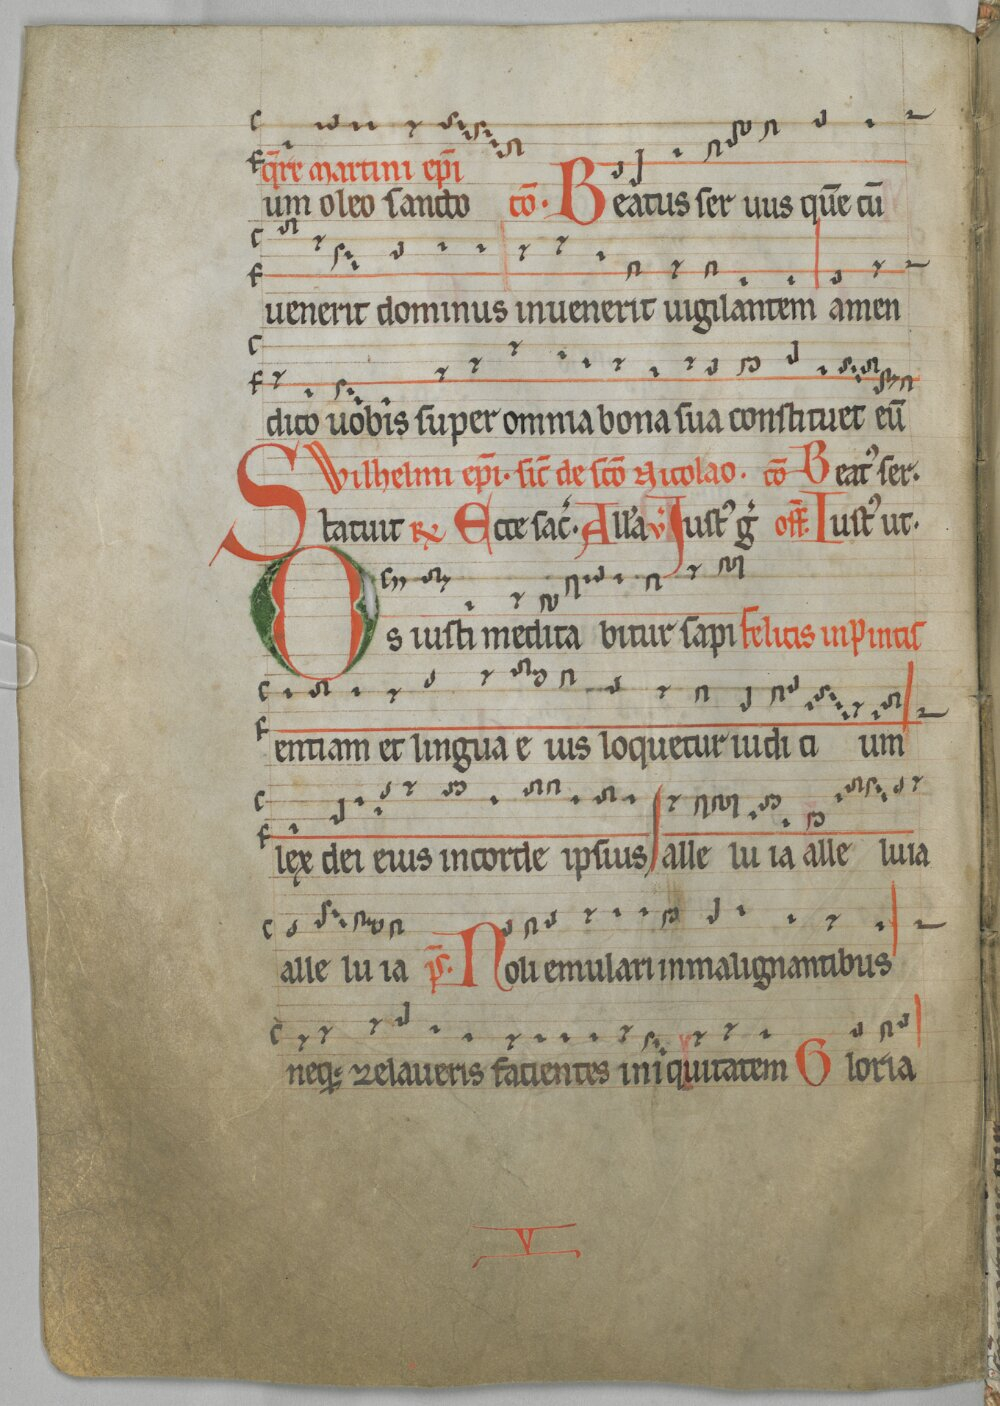 q̄re martini ep̄i
um oleo sancto cō. Beatus ser uus quē cū
uenerit dominus inuenerit uigilantem amen
dico uobis super omnia bona sua constituet eū
Wilhelmi ep̄i. sic̄ de sc̄o Nicolao. cō Beatꝰ ser.
Statuit Ecce sac̄. All'a v̄ Justꝰ g̊ off̄. Iustꝰ ut.
Os iusti medita bitur sapi felicis in pincis
entiam et lingua e ius loquetur iudi ci um
lex dei eius in corde ipsius alle lu ia alle luia
alle lu ia p̄s. Noli emulari in malignantibus
neqꝫ zelaueris facientes iniquitatem Gloria
V